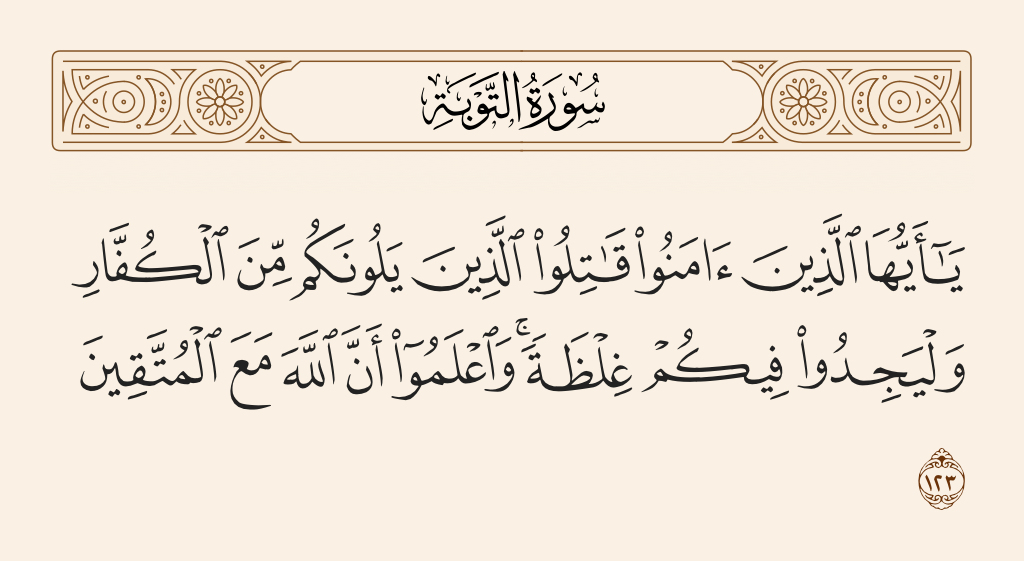 سُورَةُ التَّوْبَةِ
يَـٰٓأَيُّهَا ٱلَّذِينَ ءَامَنُوا۟ قَـٰتِلُوا۟ ٱلَّذِينَ يَلُونَكُم مِّنَ ٱلْكُفَّارِ
وَلْيَجِدُوا۟ فِيكُمْ غِلْظَةً ۚ وَٱعْلَمُوٓا۟ أَنَّ ٱللَّهَ مَعَ ٱلْمُتَّقِينَ
١٢٣